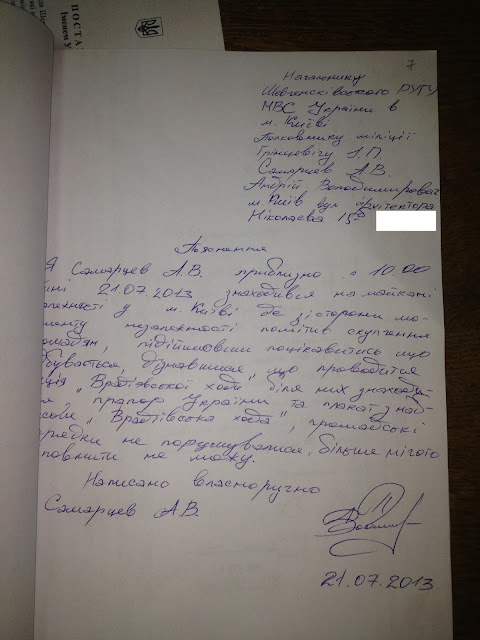 ПОСТА
Іменем У
7
Начальнику
Шевченківського РУГУ
МВС України в
м. Київі
Полковнику міліції
Грінцевічу І.П.
Самарцев А.В.
Андрій Володимирович
м. Київ вул Архітектора
Ніколаєва 15
Пояснення
Я Самарцев А.В. приблизно о 10.00
21.07.2013 знаходився на майдані
у м. Київі де зі сторони мо-
менту незалежності помітив скупчення
підійшовши поцікавитись що
дізнавшися що проводится
"Врадіївської ходи" біля них знаход
прапор України" та плакат з над-
"Врадіївська хода", громадські
не порушувалися, більше нічого
не можу.
Написано власноручно
Самарцев А.В.
21.07.2013